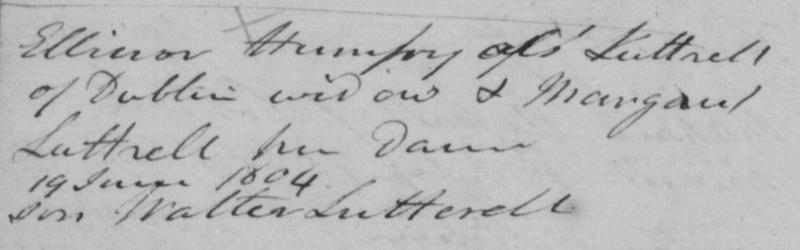 Ellinor Humfry als Luttrell
of Dublin widow & Margaret
Luttrell her Daur
19 June 1604
son Walter Lutterell